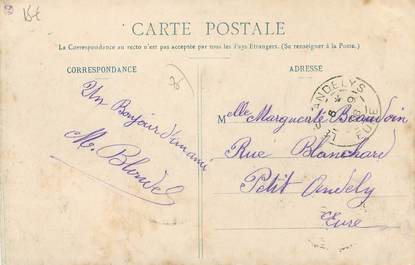 15€
CARTE POSTALE
La Correspondance au recto n'est pas acceptée par tous les Pays Etrangers. (Se renseigner à la Poste.)
CORRESPONDANCE
ADRESSE
Un Bonjour d'un ami
M. Blondel
LES ANDELYS
EURE
Melle Marguerite Beaudoin
Rue Blanchard
Petit Andely
Eure